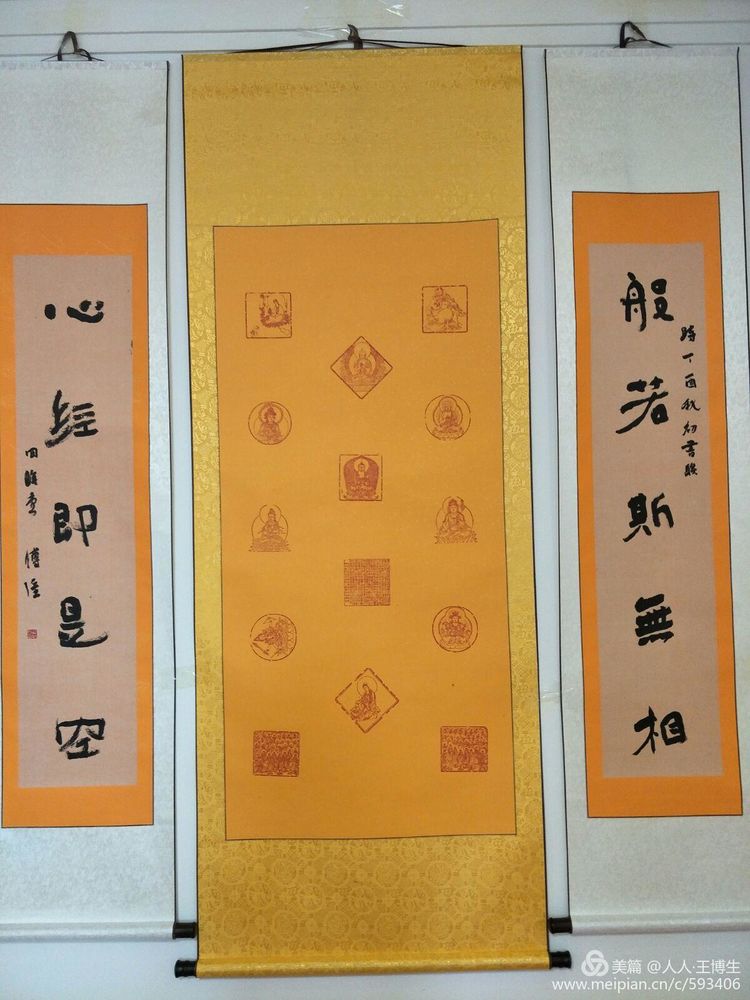 般若斯無相
時丁酉秋初書
心經即是空
美篇 @人人·王博生
www.meipian.cn/c/593406